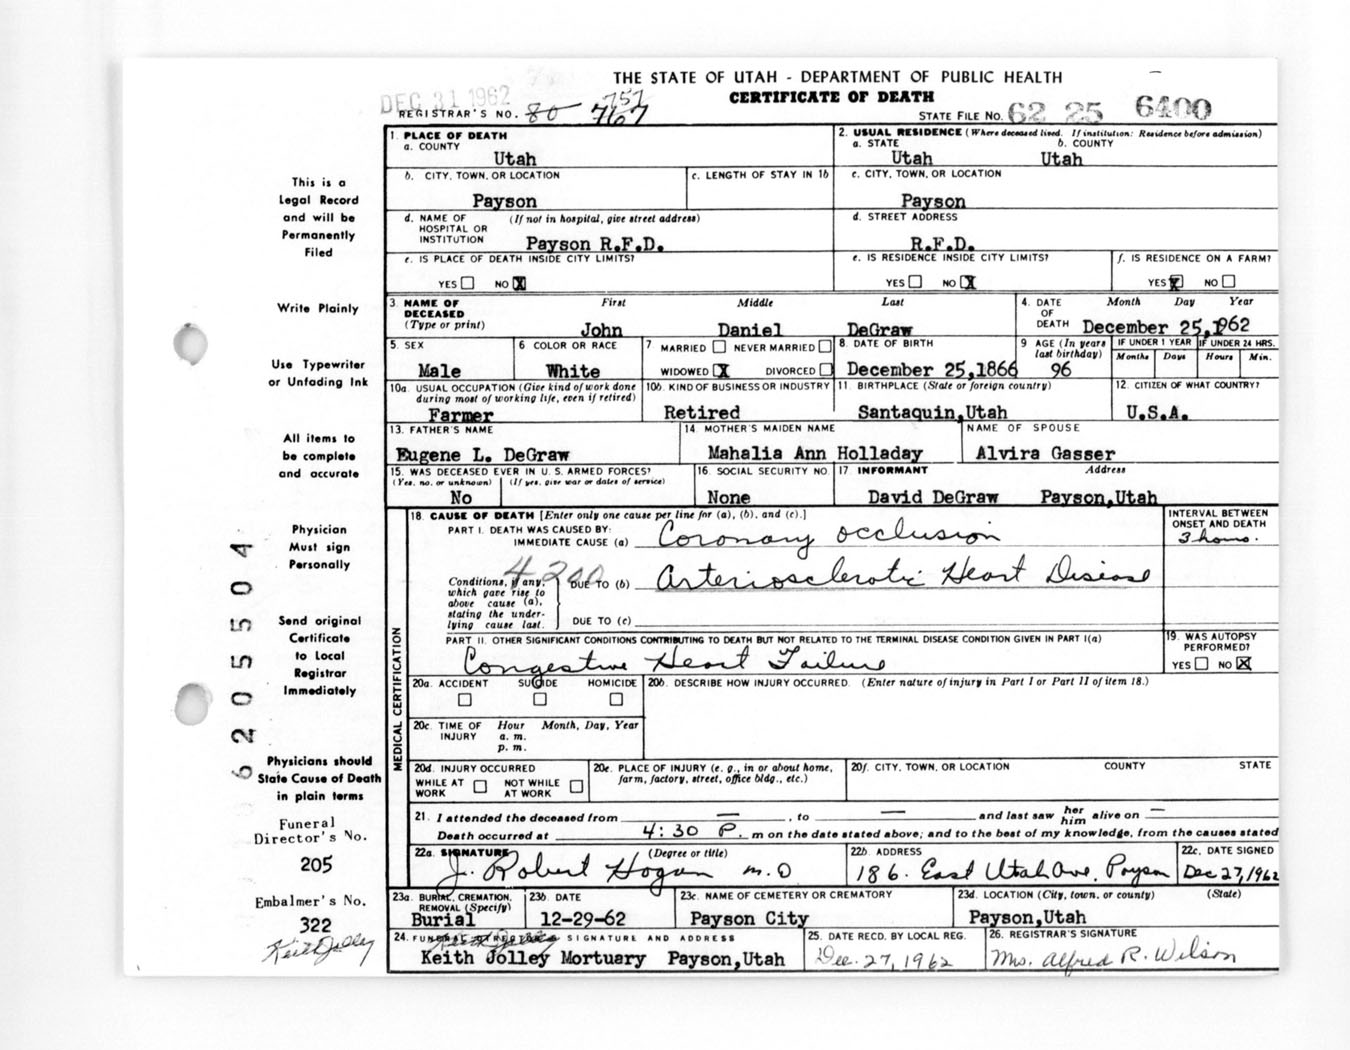 THE STATE OF UTAH - DEPARTMENT OF PUBLIC HEALTH
CERTIFICATE OF DEATH
DEC 31 1962
REGISTRAR'S NO. 80 767 757
STATE FILE NO. 62 25 6400
1. PLACE OF DEATH
a. COUNTY
Utah
2. USUAL RESIDENCE (Where deceased lived. If institution: Residence before admission)
a. STATE b. COUNTY
Utah Utah
b. CITY, TOWN, OR LOCATION
Payson
c. LENGTH OF STAY IN 1b
c. CITY, TOWN, OR LOCATION
Payson
d. NAME OF HOSPITAL OR INSTITUTION (If not in hospital, give street address)
Payson R.F.D.
d. STREET ADDRESS
R.F.D.
e. IS PLACE OF DEATH INSIDE CITY LIMITS?
YES NO X
e. IS RESIDENCE INSIDE CITY LIMITS?
YES NO X
f. IS RESIDENCE ON A FARM?
YES X NO
3. NAME OF DECEASED (Type or print)
First Middle Last
John Daniel DeGraw
4. DATE OF DEATH Month Day Year
December 25,1962
5. SEX
Male
6 COLOR OR RACE
White
7 MARRIED NEVER MARRIED
WIDOWED X DIVORCED
8. DATE OF BIRTH
December 25,1866
9 AGE (In years last birthday)
96
IF UNDER 1 YEAR
Months Days
IF UNDER 24 HRS.
Hours Min.
10a. USUAL OCCUPATION (Give kind of work done during most of working life, even if retired)
Farmer
10b. KIND OF BUSINESS OR INDUSTRY
Retired
11. BIRTHPLACE (State or foreign country)
Santaquin,Utah
12. CITIZEN OF WHAT COUNTRY?
U.S.A.
13. FATHER'S NAME
Eugene L. DeGraw
14. MOTHER'S MAIDEN NAME
Mahalia Ann Holladay
NAME OF SPOUSE
Alvira Gasser
15. WAS DECEASED EVER IN U.S. ARMED FORCES?
(Yes, no, or unknown) (If yes, give war or dates of service)
No
16. SOCIAL SECURITY NO.
None
17 INFORMANT Address
David DeGraw Payson,Utah
MEDICAL CERTIFICATION
18. CAUSE OF DEATH [Enter only one cause per line for (a), (b), and (c).]
PART I. DEATH WAS CAUSED BY:
IMMEDIATE CAUSE (a) Coronary occlusion
INTERVAL BETWEEN ONSET AND DEATH
3 hours.
4200
Conditions, if any, which gave rise to above cause (a), stating the underlying cause last.
DUE TO (b) Arteriosclerotic Heart Disease
DUE TO (c)
PART II. OTHER SIGNIFICANT CONDITIONS CONTRIBUTING TO DEATH BUT NOT RELATED TO THE TERMINAL DISEASE CONDITION GIVEN IN PART I(a)
Congestive Heart Failure
19. WAS AUTOPSY PERFORMED?
YES NO X
20a. ACCIDENT SUICIDE HOMICIDE
20b. DESCRIBE HOW INJURY OCCURRED. (Enter nature of injury in Part I or Part II of item 18.)
20c. TIME OF INJURY Hour Month, Day, Year
a. m.
p. m.
20d. INJURY OCCURRED
WHILE AT WORK NOT WHILE AT WORK
20e. PLACE OF INJURY (e. g., in or about home, farm, factory, street, office bldg., etc.)
20f. CITY, TOWN, OR LOCATION COUNTY STATE
21. I attended the deceased from — , to — and last saw her him alive on —
Death occurred at 4:30 P. m on the date stated above; and to the best of my knowledge, from the causes stated
22a. SIGNATURE (Degree or title)
J. Robert Hogan M.D
22b. ADDRESS
186. East Utah Ave. Payson
22c. DATE SIGNED
Dec 27,1962
23a. BURIAL, CREMATION, REMOVAL (Specify)
Burial
23b. DATE
12-29-62
23c. NAME OF CEMETERY OR CREMATORY
Payson City
23d. LOCATION (City, town, or county) (State)
Payson,Utah
24. FUNERAL DIRECTOR'S SIGNATURE AND ADDRESS
Keith Jolley Mortuary Payson,Utah
25. DATE RECD. BY LOCAL REG.
Dec. 27, 1962
26. REGISTRAR'S SIGNATURE
Mrs. Alfred R. Wilson
This is a
Legal Record
and will be
Permanently
Filed
Write Plainly
Use Typewriter
or Unfading Ink
All items to
be complete
and accurate
Physician
Must sign
Personally
Send original
Certificate
to Local
Registrar
Immediately
Physicians should
State Cause of Death
in plain terms
Funeral
Director's No.
205
Embalmer's No.
322
Keith Jolley
62055504